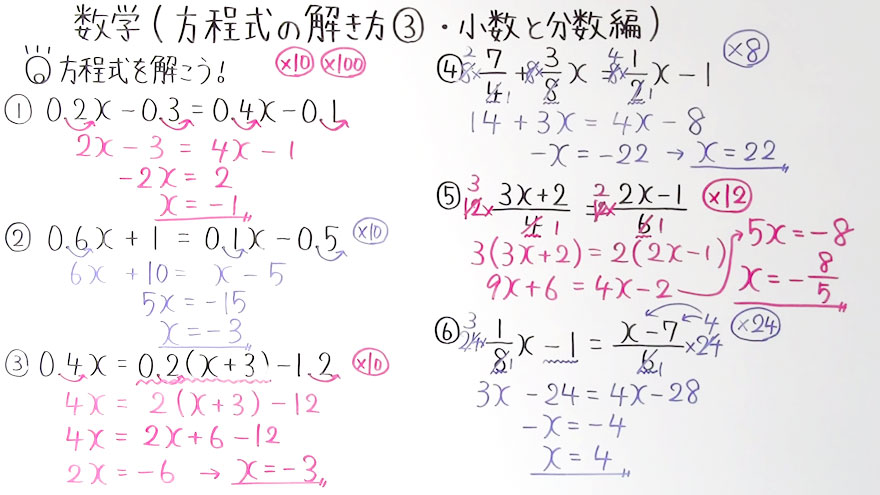 数学(方程式の解き方③・小数と分数編)
方程式を解こう! ×10 ×100
① 0.2x-0.3=0.4x-0.1
2x-3=4x-1
-2x=2
x=-1
② 0.6x+1=0.1x-0.5 ×10
6x+10=x-5
5x=-15
x=-3
③ 0.4x=0.2(x+3)-1.2 ×10
4x=2(x+3)-12
4x=2x+6-12
2x=-6 → x=-3
④ 2 8× 7/4 1 + 8× 3/8 x = 4 8× 1/2 1 x-1 ×8
14+3x=4x-8
-x=-22 → x=22
⑤ 3 12× 3x+2/4 1 = 2 12× 2x-1/6 1 ×12
3(3x+2)=2(2x-1)
9x+6=4x-2
5x=-8
x=-8/5
⑥ 3 24× 1/8 1 x-1 = x-7/6 1 ×24 4 ×24
3x-24=4x-28
-x=-4
x=4